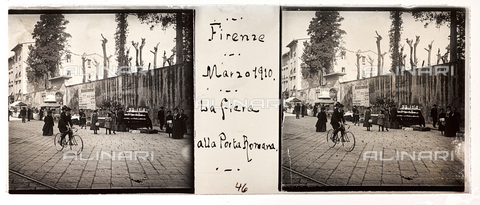 Firenze
Marzo 1910.
La fiera
alla Porta Romana.
46
ALINARI
ALINARI
ALINARI
ALINARI